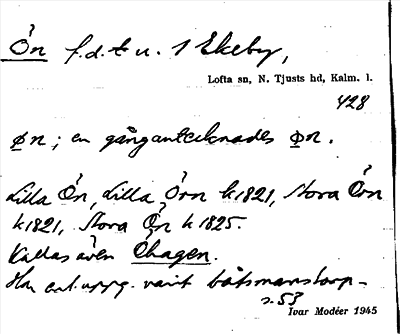 Ön f.d.t u. 1 Ekeby,
Lofta sn, N. Tjusts hd, Kalm. l.
428
øn; en gång antecknades øn.
Lilla Ön, Lilla Örn k 1821, Stora Örn
k 1821, Stora Ön k 1825.
Kallas även Öhagen.
Har enl. uppg. varit båtsmanstorp.
s. 53
Ivar Modéer 1945